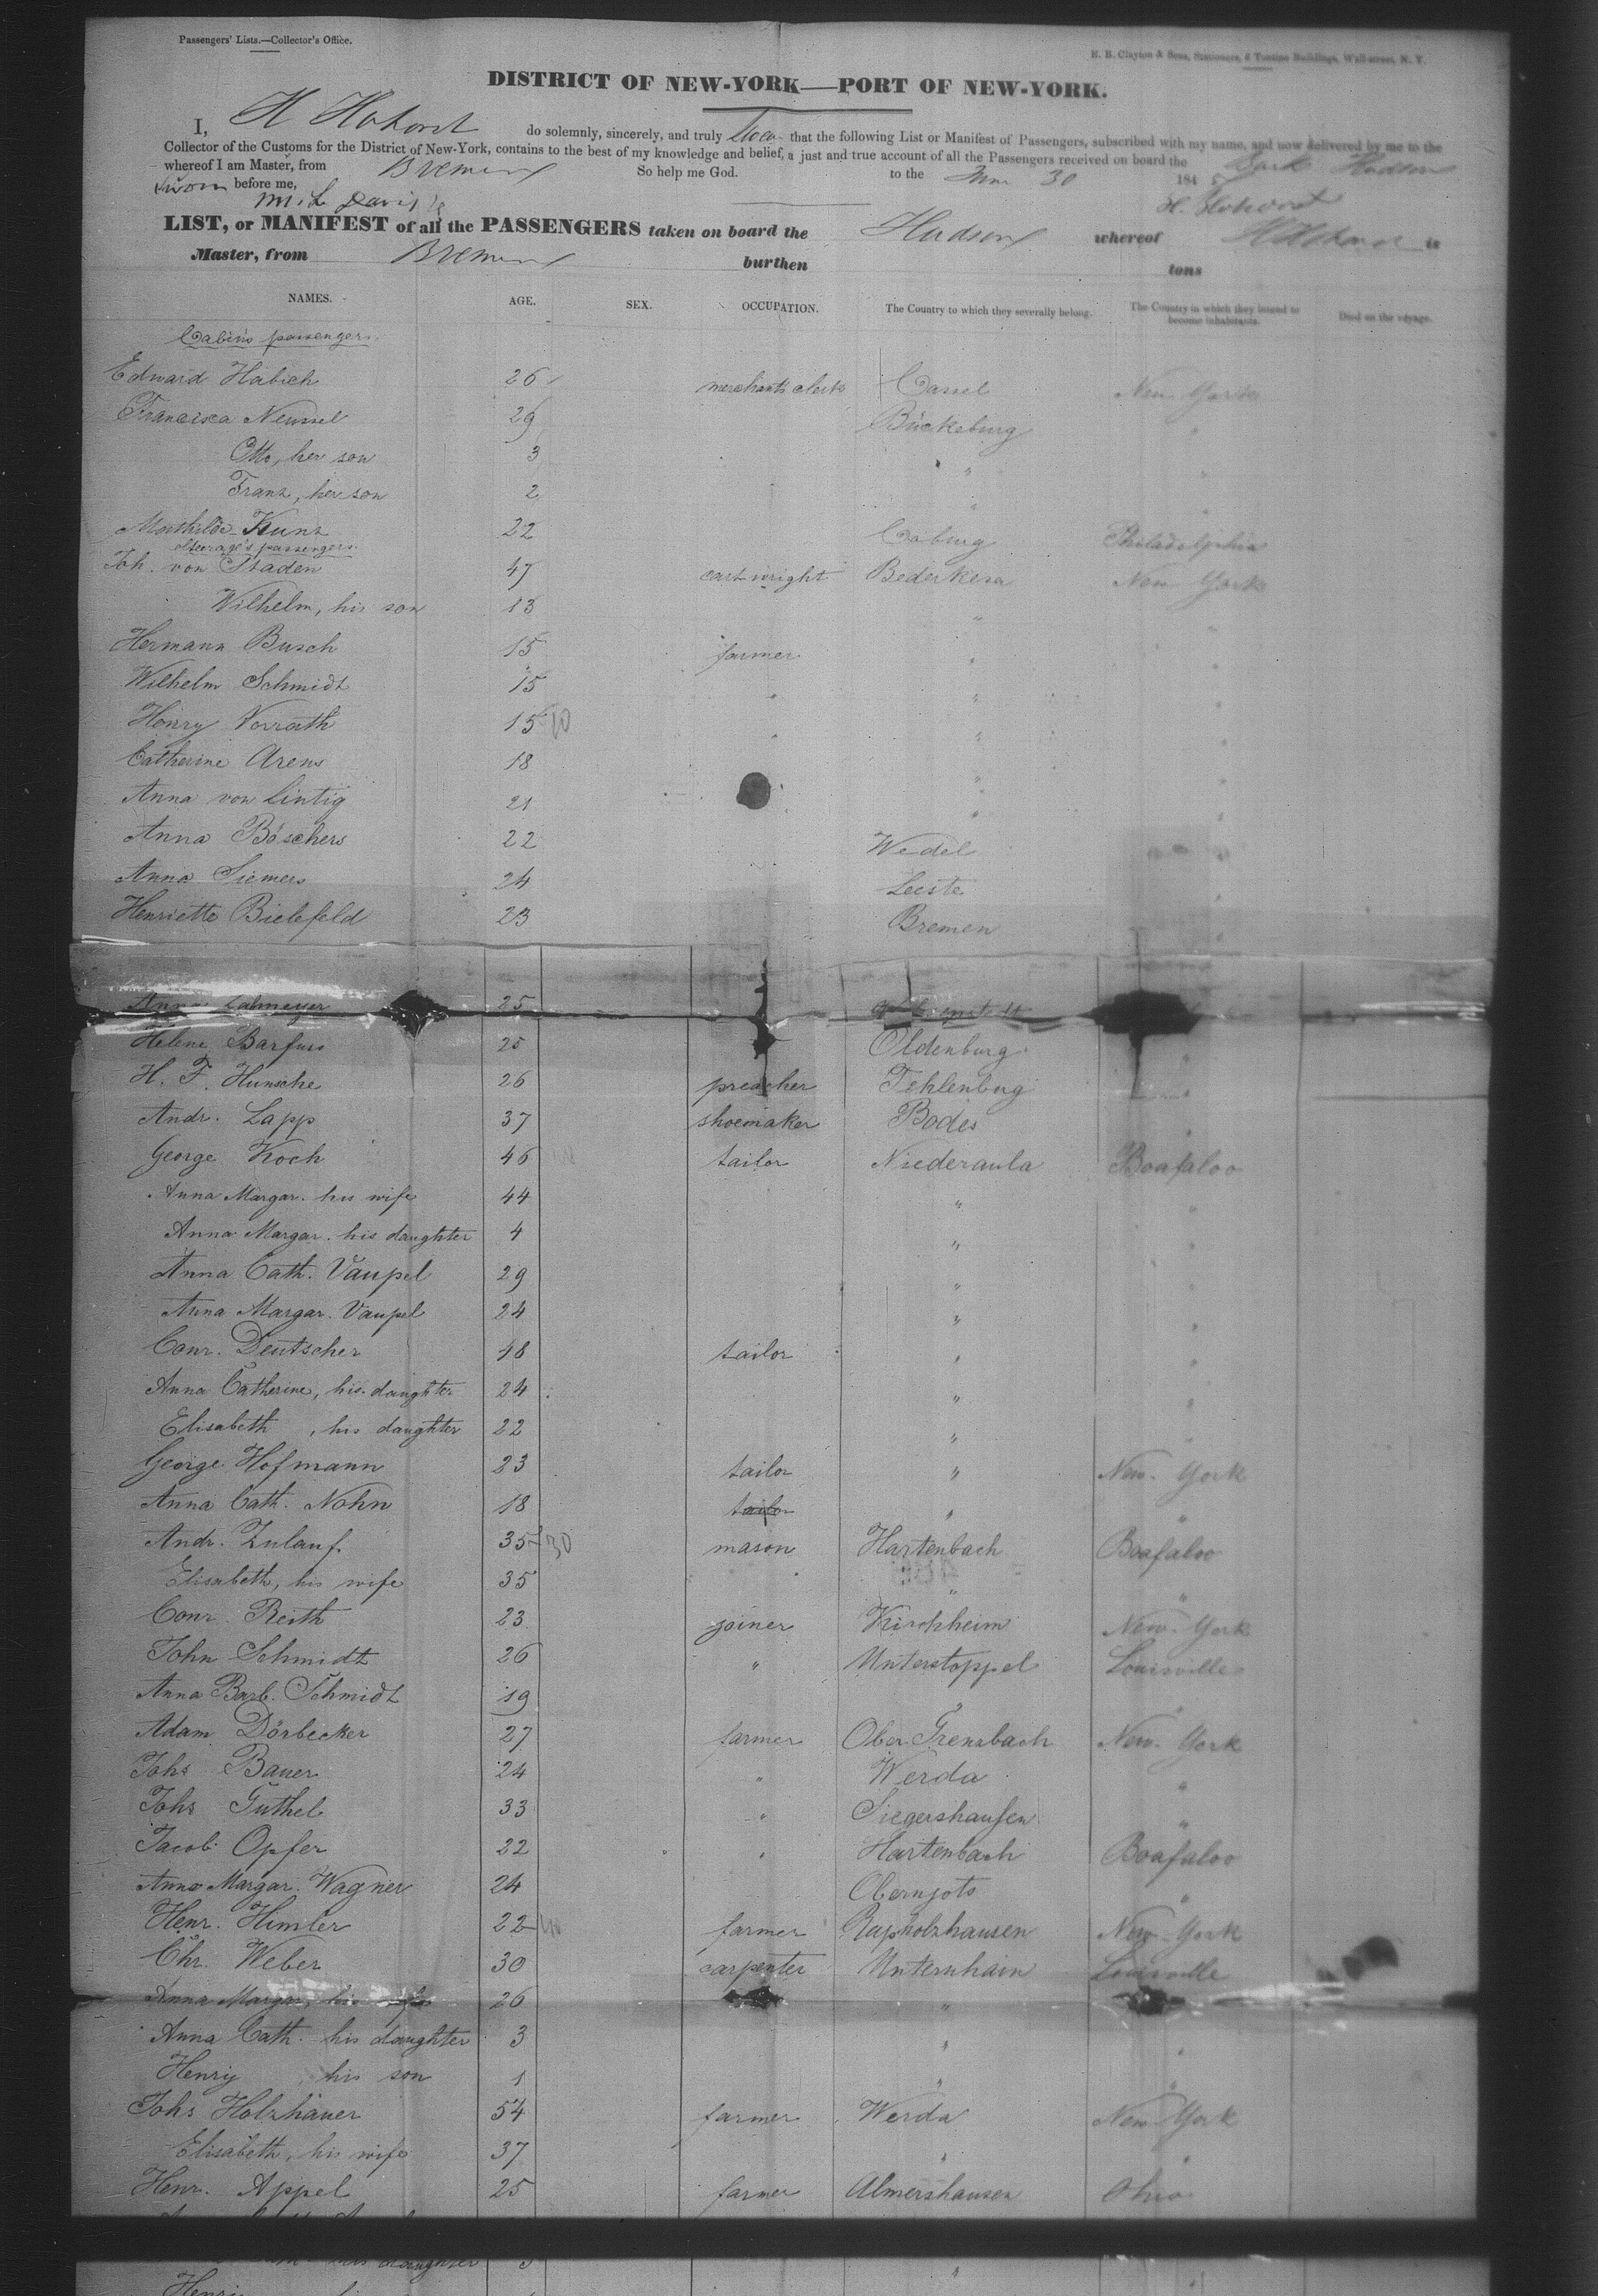 Passengers' Lists.—Collector's Office.
H. B. Clayton & Sons, Stationers, Tontine Buildings, Wall-street, N. Y.
DISTRICT OF NEW-YORK—PORT OF NEW-YORK.
I, H Hohorst do solemnly, sincerely, and truly that the following List or Manifest of Passengers, subscribed with my name, and now delivered by me to the
Collector of the Customs for the District of New-York, contains to the best of my knowledge and belief, a just and true account of all the Passengers received on board the Bark Hudson
whereof I am Master, from Bremen to the 30 184
So help me God.
before me, H. Hohorst
LIST, or MANIFEST of all the PASSENGERS taken on board the Hudson whereof H Hohorst is
Master, from Bremen burthen tons
NAMES. AGE. SEX. OCCUPATION. The Country to which they severally belong. The Country in which they intend to become inhabitants. Died on the voyage.
Cabin's passengers
Edward Habich 26 merchants clerk Cassel New York
Francisca Neussel 29 Bückeburg "
Otto, her son 3 " "
Franz, her son 2 " "
Mathilde Kunz 22 Coburg Philadelphia
Steerage's passengers
Joh. von Staden 47 cartwright Bederkesa New York
Wilhelm, his son 13 " "
Hermann Busch 15 farmer " "
Wilhelm Schmidt 15 " " "
Henry Vorrath 15 " " "
Catherine Arens 18 " "
Anna von Lintig 21 " "
Anna Böschers 22 Wedel "
Anna Siemers 24 Leeste "
Henriette Bielefeld 23 Bremen "
Anna Lahmeyer 25
Helene Barfuss 25 Oldenburg "
H. F. Hunsche 26 preacher Tehlenbug "
Andr. Lapp 37 shoemaker Bodes "
George Koch 46 tailor Niederaula Boafaloo
Anna Margar. his wife 44 " "
Anna Margar. his daughter 4 " "
Anna Cath. Vaupel 29 " "
Anna Margar. Vaupel 24 " "
Conr. Deutscher 48 tailor " "
Anna Catherine, his daughter 24 " "
Elisabeth, his daughter 22 " "
George Hofmann 23 tailor " New-York
Anna Cath. Nohn 18 tailor " "
Andr. Zulauf 35 mason Hartenbach Boafaloo
Elisabeth, his wife 35 " "
Conr. Reith 23 joiner Kirchheim New-York
John Schmidt 26 " Unterstoppel Louisville
Anna Barb. Schmidt 19 "
Adam Dörbecker 27 farmer Ober Grenzbach New-York
Johs Bauer 24 " Werda "
Johs Güthel 33 " Siegershausen "
Jacob Opfer 22 " Hartenbach Boafaloo
Anna Margar. Wagner 24 "
Henr. Himler 22 farmer Rapholzhausen New-York
Chr. Weber 30 carpenter Unternhain Louisville
Anna Margar, his wife 26 "
Anna Cath. his daughter 3 " "
Henry his son 1 " "
Johs Holzhauer 54 farmer Werda New York
Elisabeth, his wife 37 " "
Henr. Appel 25 farmer Almershausen Ohio
his daughter
Henry